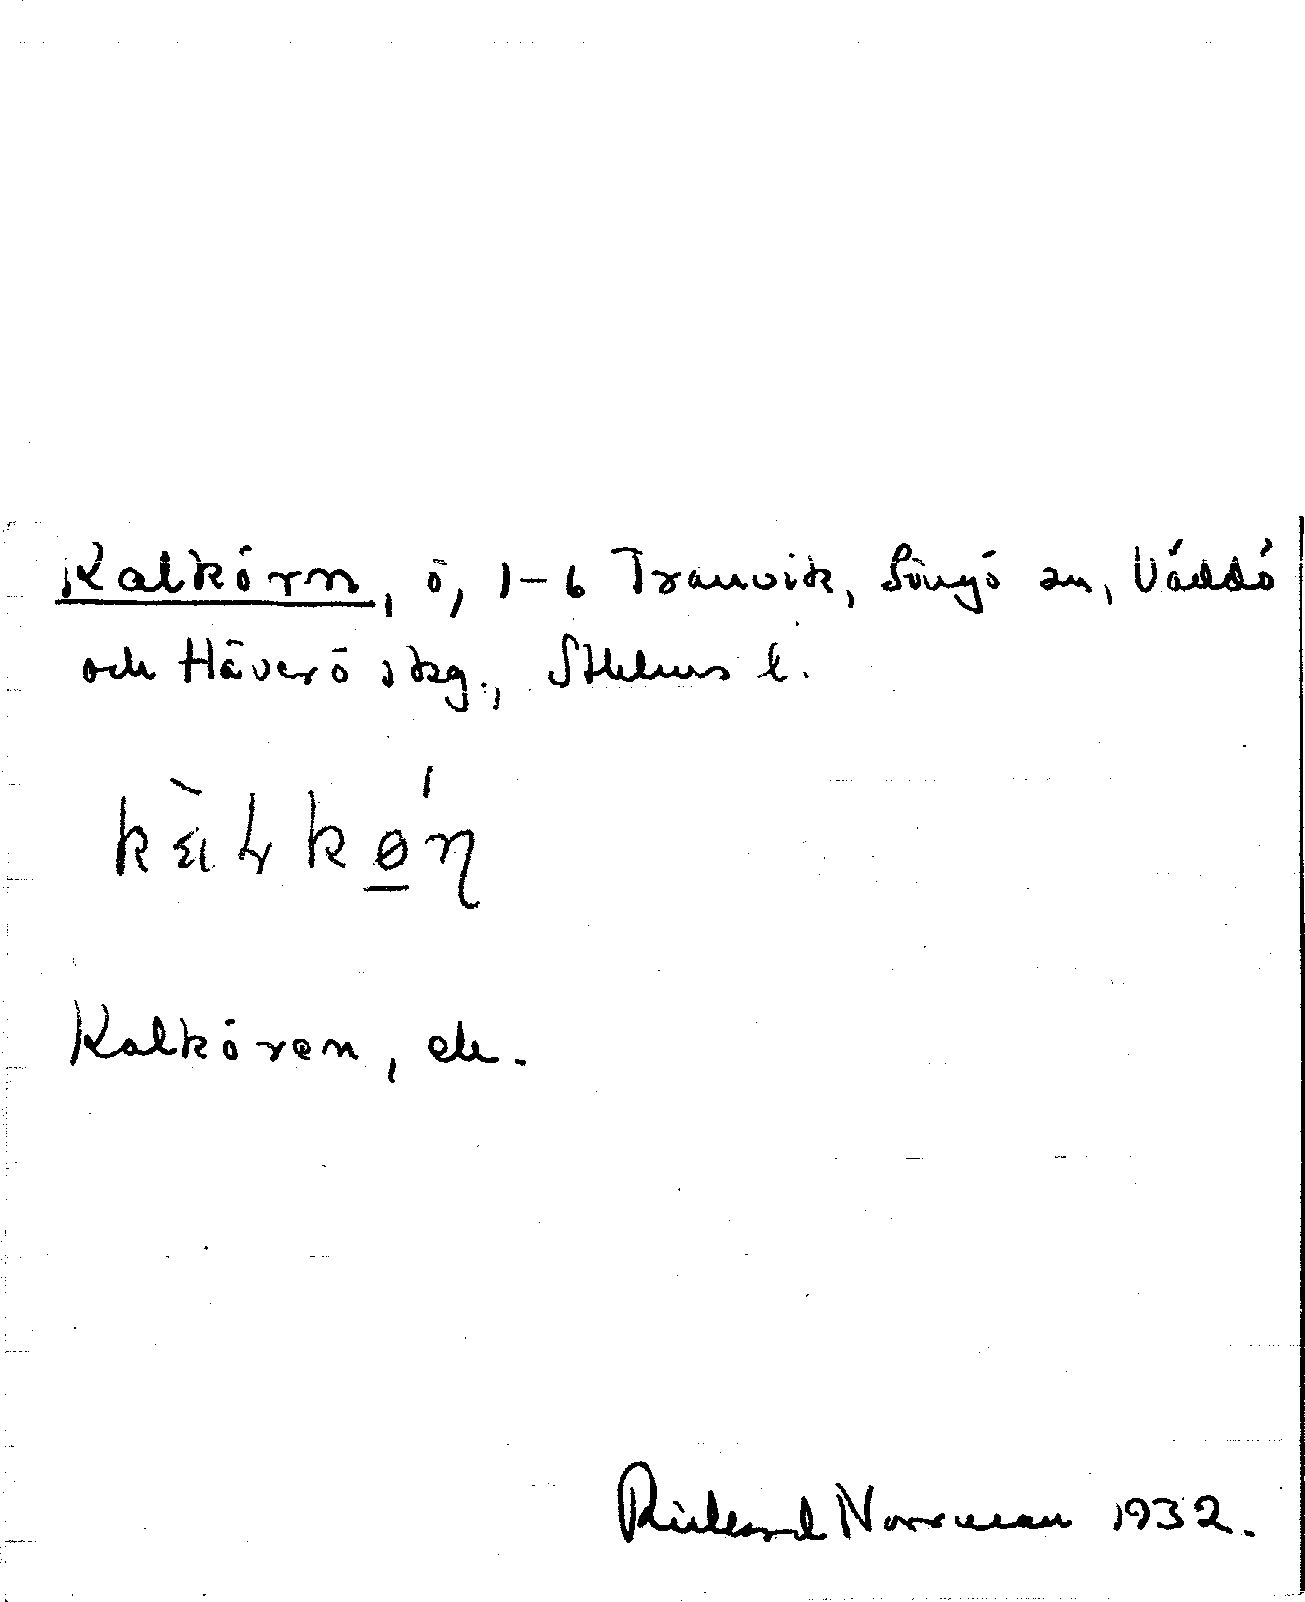 Kalkörn, ö, 1-6 Tranvik, Singö sn, Väddö
och Häverö skg., Sthlms l.
Kalkören, ek.
Rickard Norrman 1932.